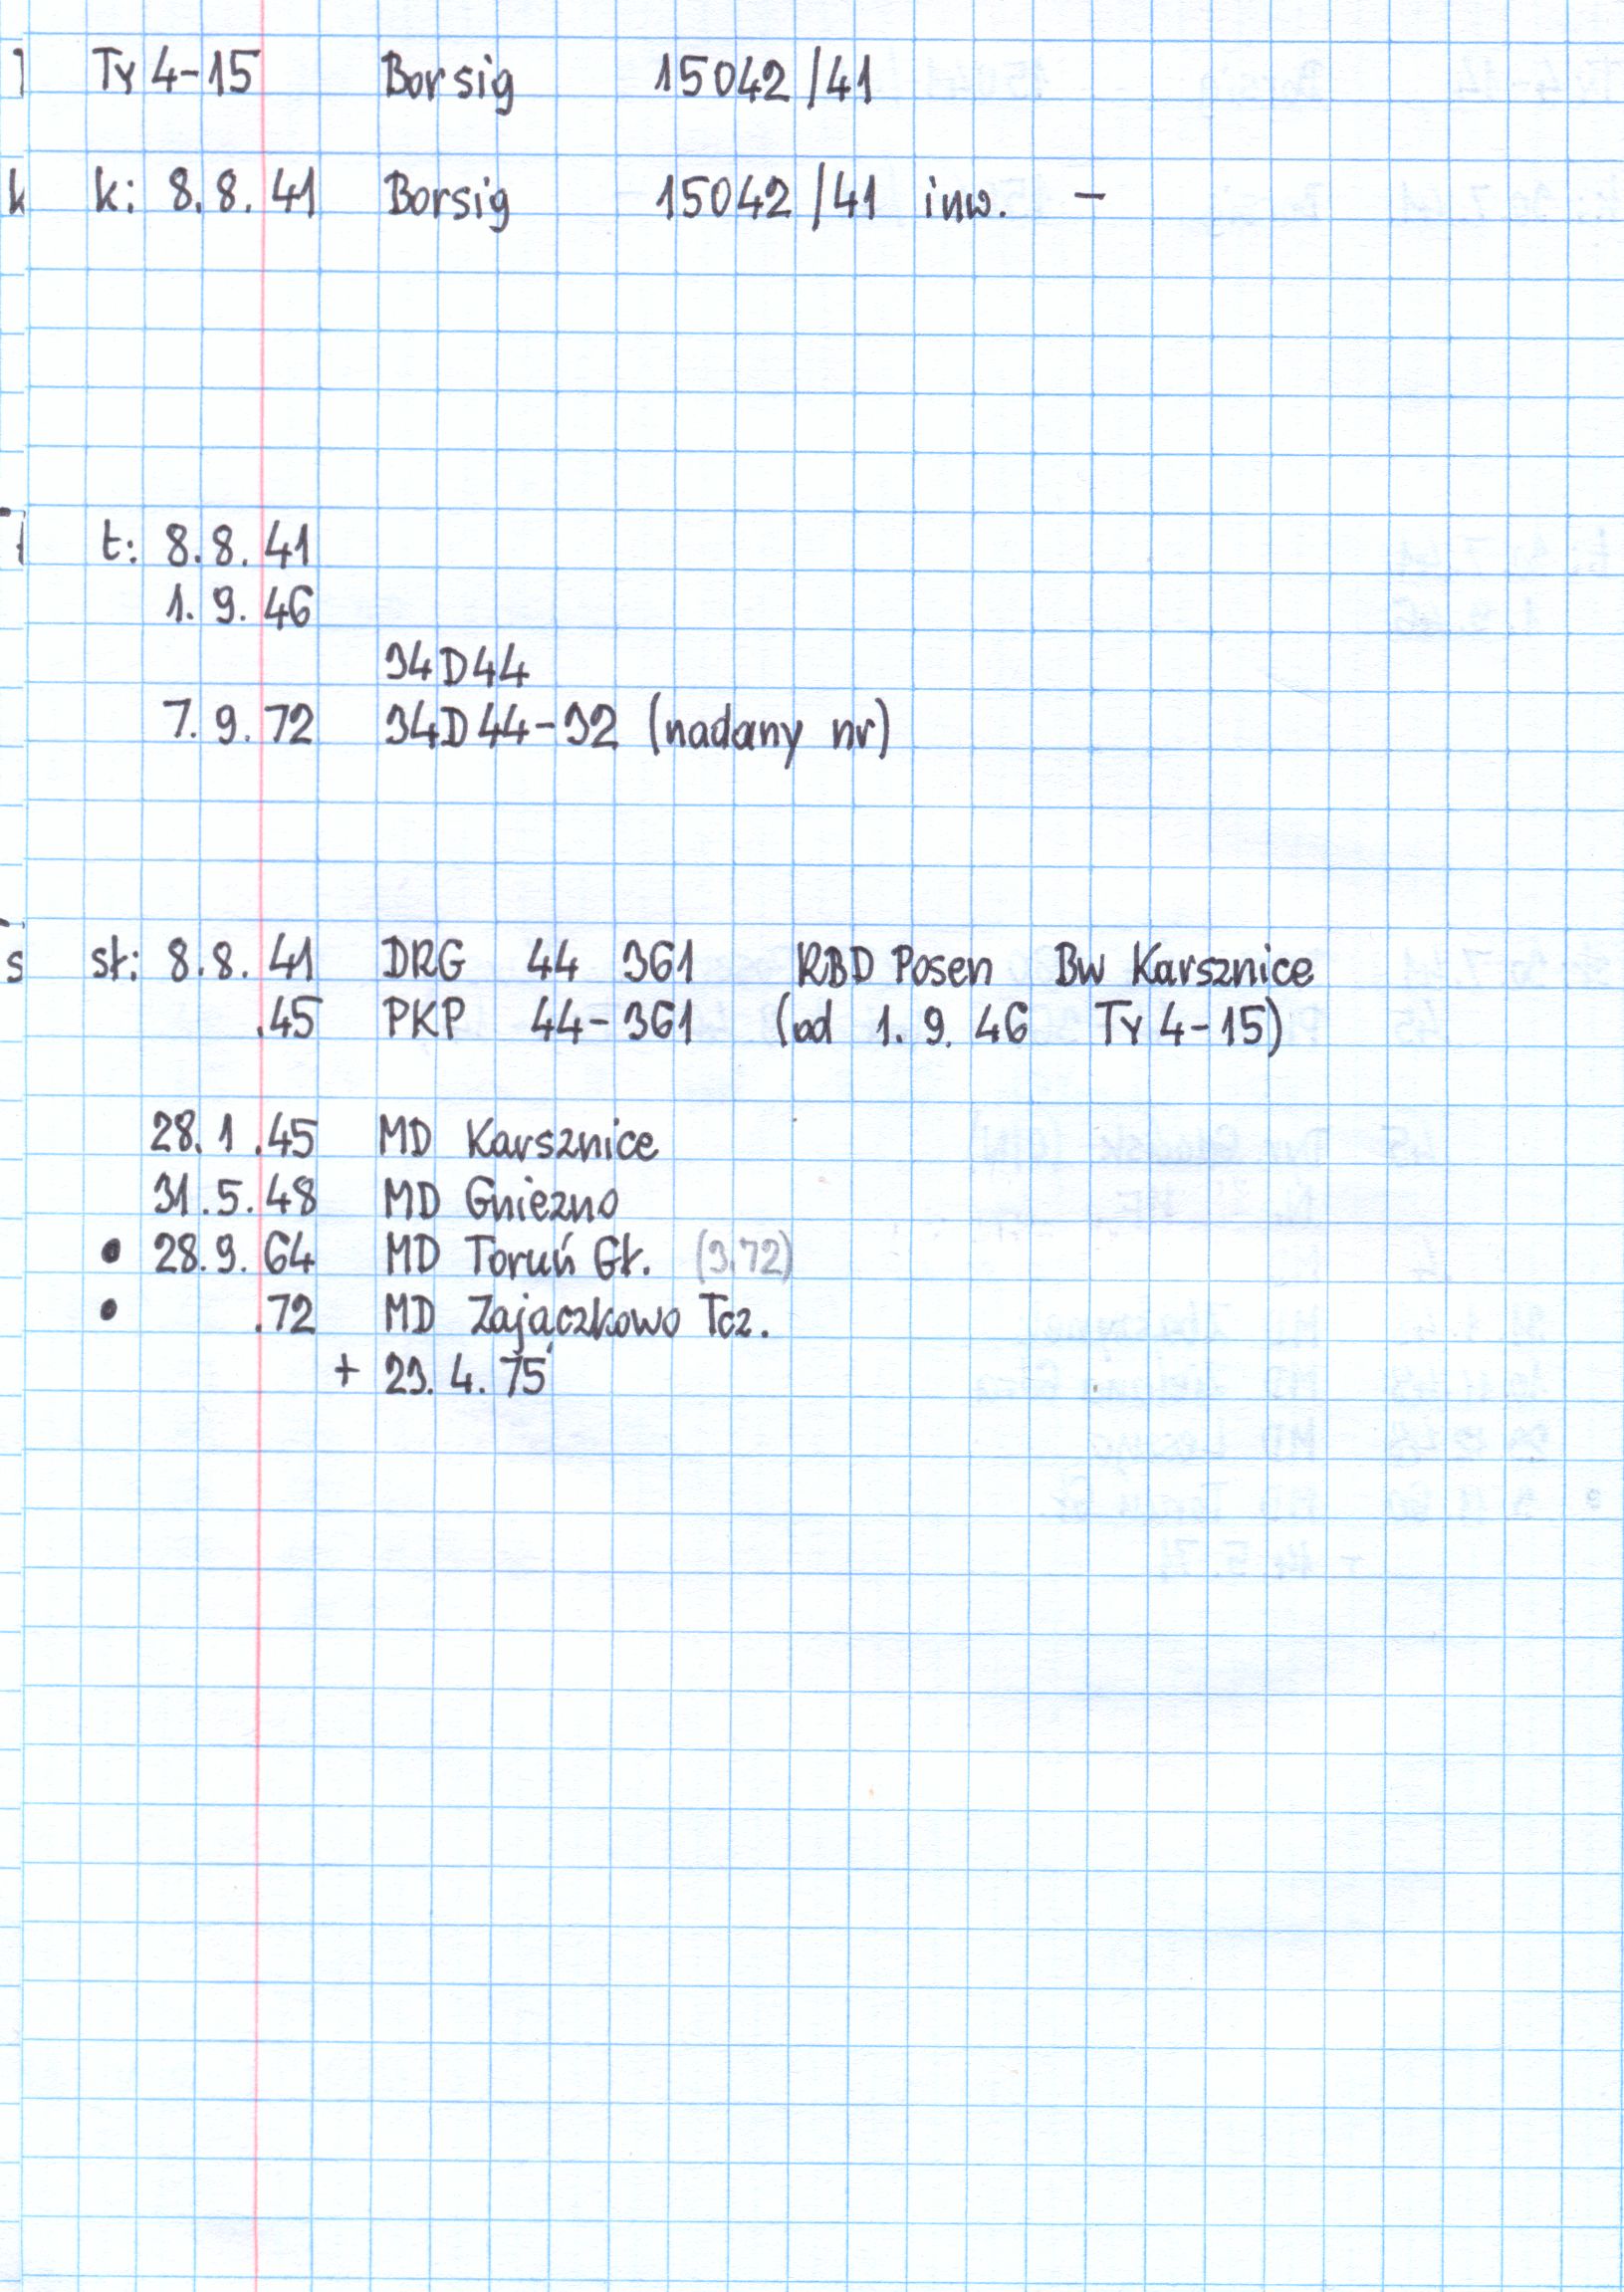 Ty 4-15 Borsig 15042/41
k: 8.8.41 Borsig 15042/41 inw. -
t: 8.8.41
1.9.46
34D44
7.9.72 34D44-32 (nadany nr)
st: 8.8.41 DRG 44 361 RBD Posen Bw Karsznice
.45 PKP 44-361 (od 1.9.46 Ty 4-15)
28.1.45 MD Karsznice
31.5.48 MD Gniezno
• 28.9.64 MD Toruń Gł. (3.72)
• .72 MD Zajączkowo Tcz.
+ 23.4.75